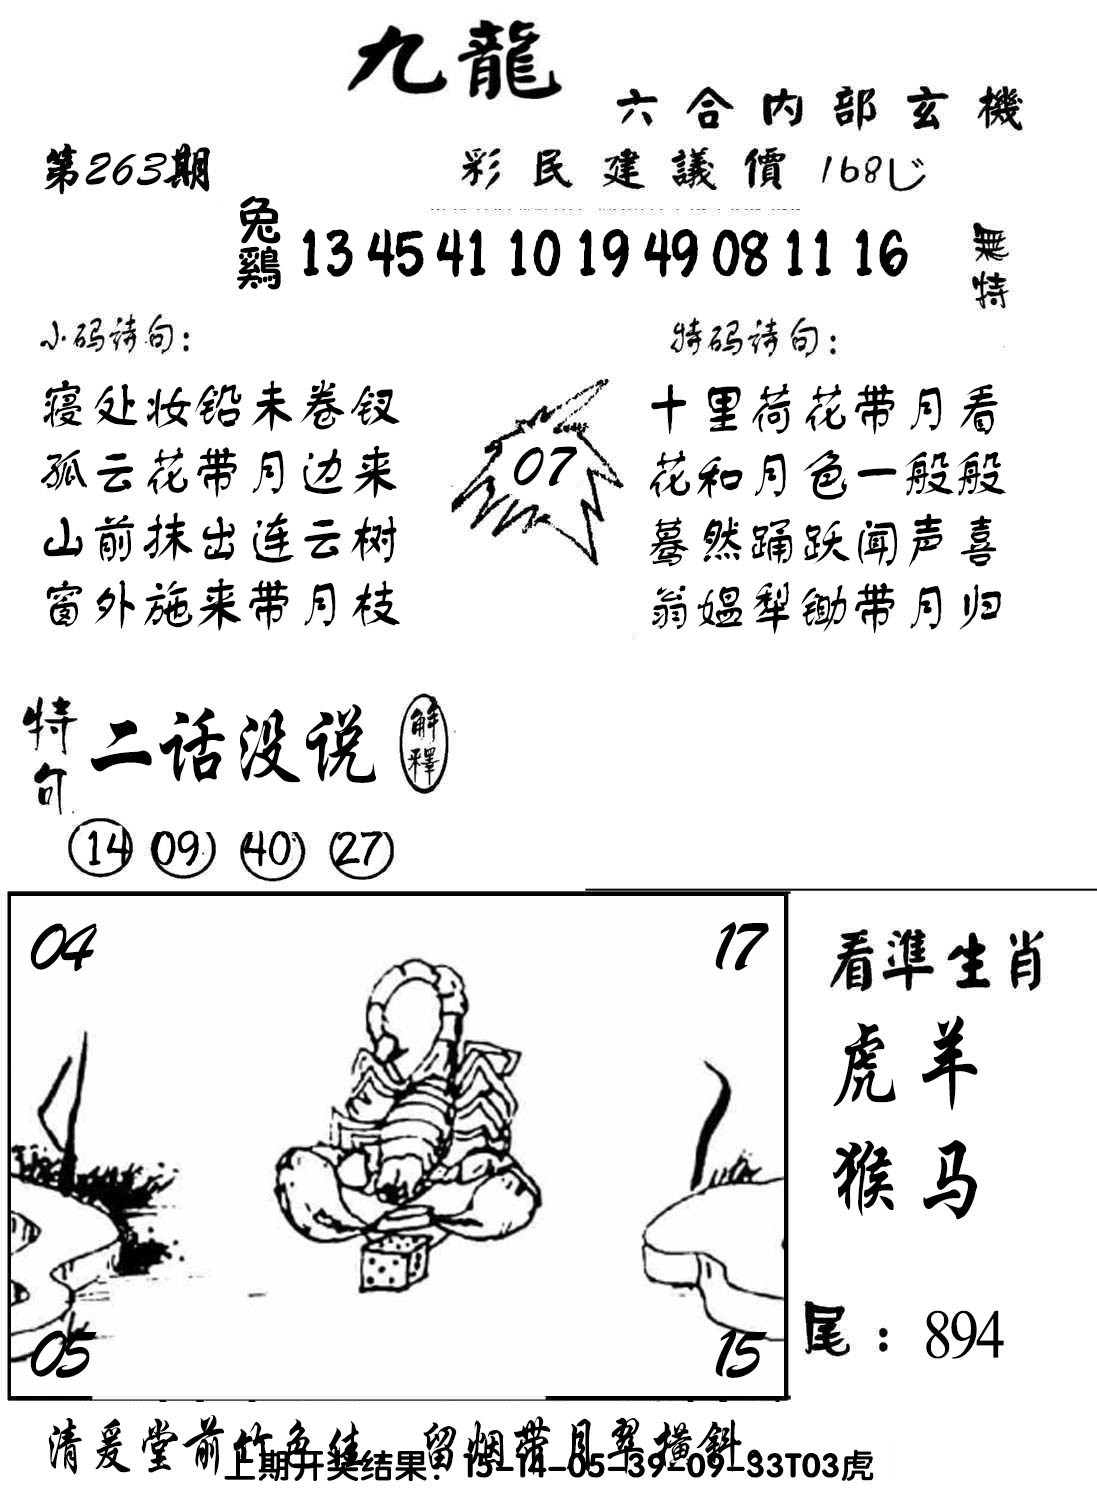 九龍
六合内部玄機
第263期
彩民建議價 168
兔鷄 13 45 41 10 19 49 08 11 16
無特
小码诗句：
寝处妆铅未卷钗
孤云花带月边来
山前抹出连云树
窗外施来带月枝
07
特码诗句：
十里荷花带月看
花和月色一般般
蓦然踊跃闻声喜
翁媪犁锄带月归
特句
二话没说
解釋
14 09 40 27
04 17
05 15
看準生肖
虎羊
猴马
尾：894
清爰堂前竹色佳 留烟带月翠横斜。
上期开奖结果：15-14-05-39-09-33T03虎